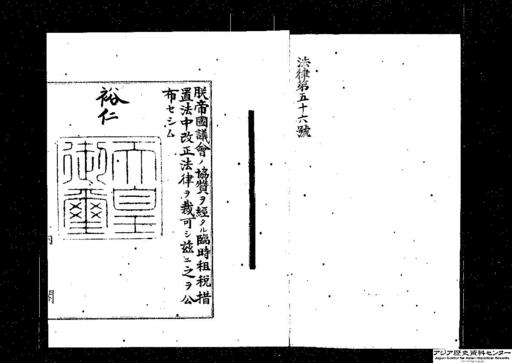 法律第五十六號
朕帝國議會ノ協贊ヲ經タル臨時租稅措
置法中改正法律ヲ裁可シ玆ニ之ヲ公
布セシム
裕仁
天皇
御璽
内閣
アジア歴史資料センター
Japan Center for Asian Historical Records